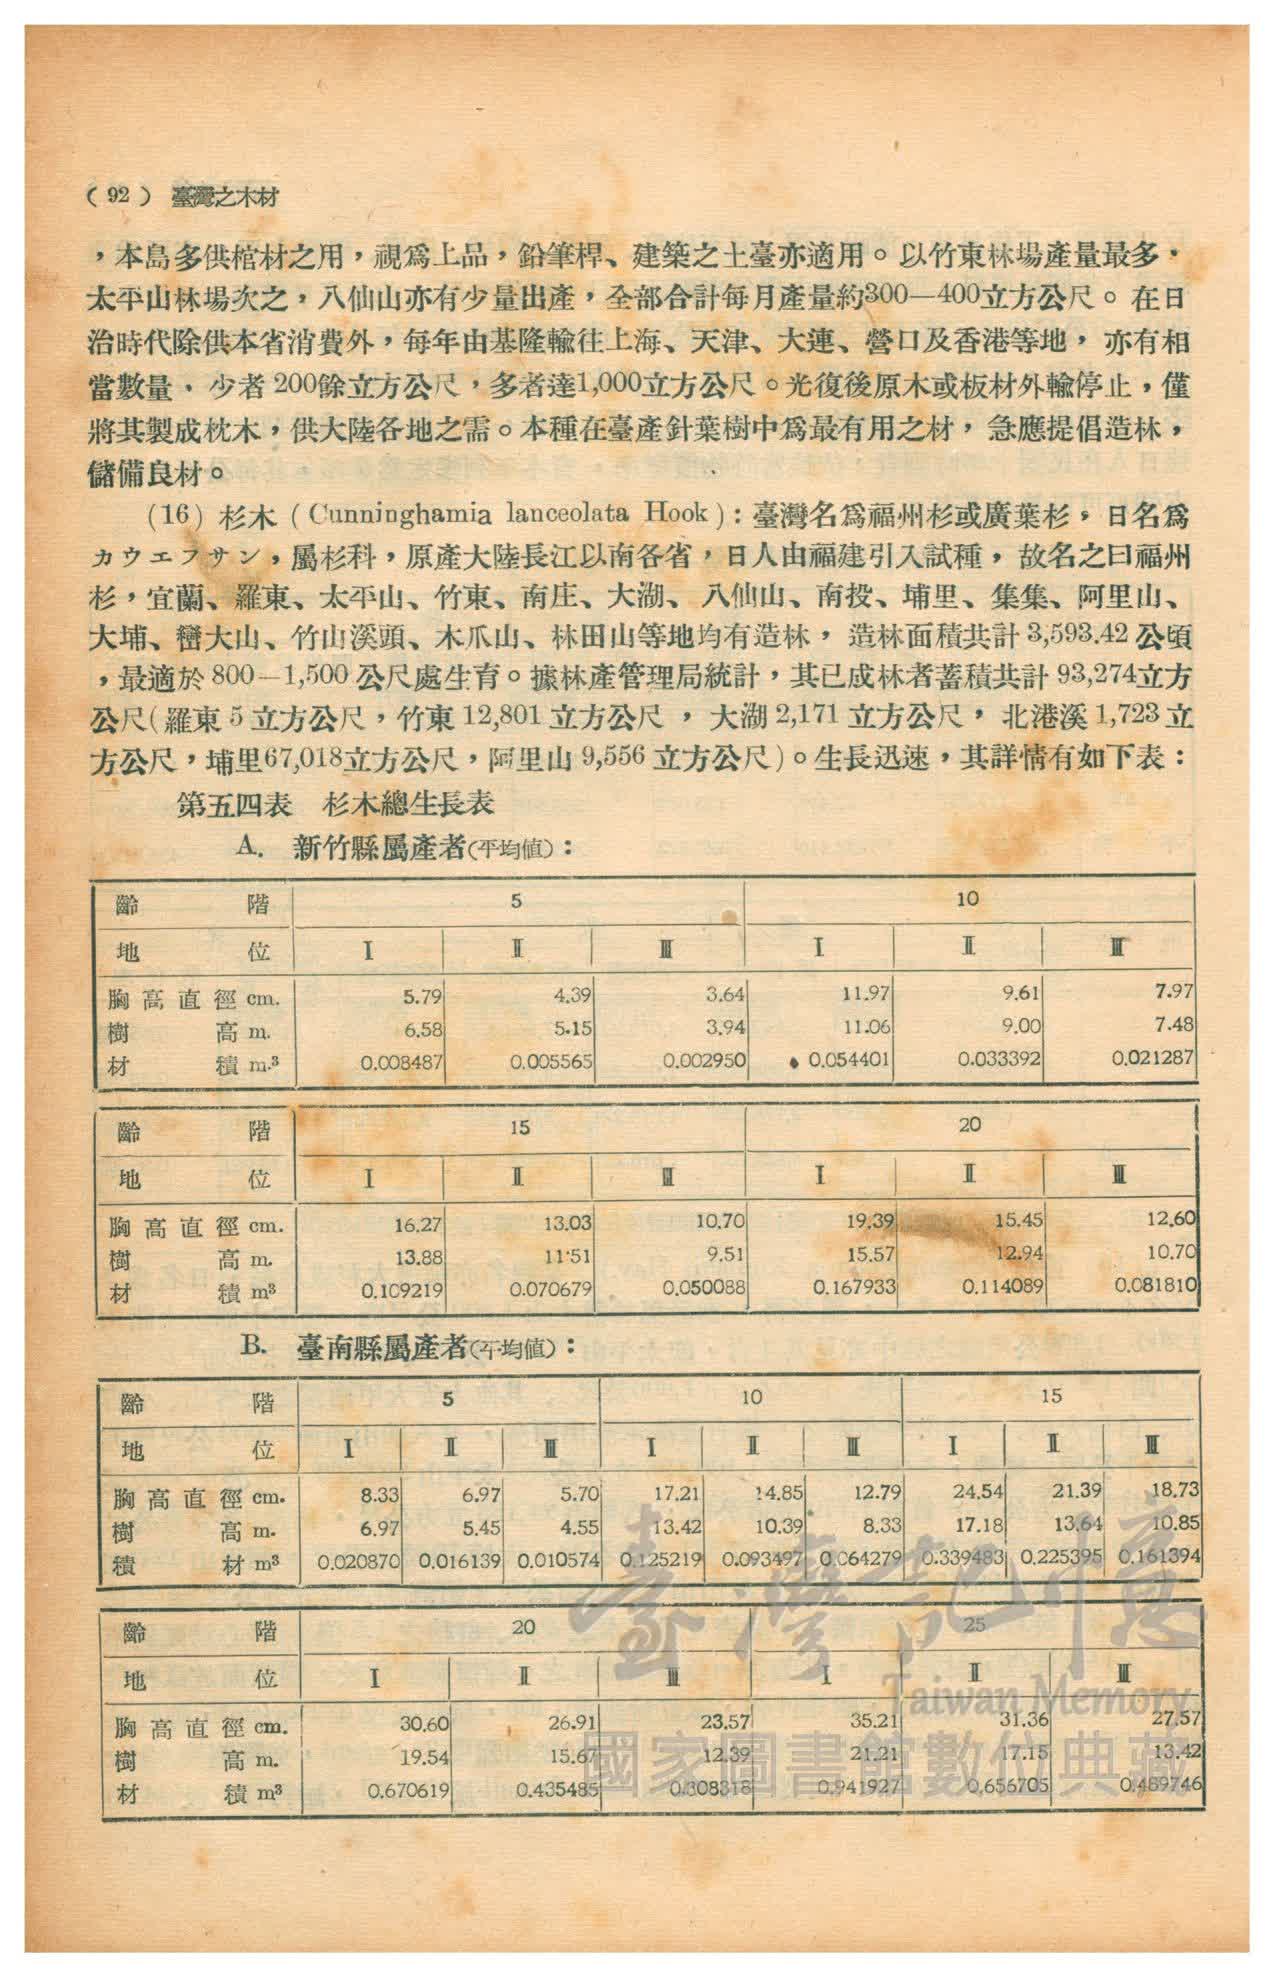 ( 92 ) 臺灣之木材
，本島多供棺材之用，視爲上品，鉛筆桿、建築之土臺亦適用。以竹東林場產量最多，
太平山林場次之，八仙山亦有少量出產，全部合計每月產量約300—400立方公尺。在日
治時代除供本省消費外，每年由基隆輸往上海、天津、大連、營口及香港等地，亦有相
當數量，少者200餘立方公尺，多者達1,000立方公尺。光復後原木或板材外輸停止，僅
將其製成枕木，供大陸各地之需。本種在臺產針葉樹中爲最有用之材，急應提倡造林，
儲備良材。
(16) 杉木 ( Cunninghamia lanceolata Hook )：臺灣名爲福州杉或廣葉杉，日名爲
カウエフサン，屬杉科，原產大陸長江以南各省，日人由福建引入試種，故名之曰福州
杉，宜蘭、羅東、太平山、竹東、南庄、大湖、八仙山、南投、埔里、集集、阿里山、
大埔、巒大山、竹山溪頭、木瓜山、林田山等地均有造林，造林面積共計3,593.42公頃
，最適於800—1,500公尺處生育。據林產管理局統計，其已成林者蓄積共計93,274立方
公尺(羅東5立方公尺，竹東12,801立方公尺，大湖2,171立方公尺，北港溪1,723立
方公尺，埔里67,018立方公尺，阿里山9,556立方公尺)。生長迅速，其詳情有如下表：
第五四表 杉木總生長表
A. 新竹縣屬產者(平均値)：
齡階 5 10
地位 I II III I II III
胸高直徑cm. 5.79 4.39 3.64 11.97 9.61 7.97
樹高m. 6.58 5.15 3.94 11.06 9.00 7.48
材積m.³ 0.008487 0.005565 0.002950 0.054401 0.033392 0.021287
齡階 15 20
地位 I II III I II III
胸高直徑cm. 16.27 13.03 10.70 19.39 15.45 12.60
樹高m. 13.88 11.51 9.51 15.57 12.94 10.70
材積m³ 0.109219 0.070679 0.050088 0.167933 0.114089 0.081810
B. 臺南縣屬產者(平均値)：
齡階 5 10 15
地位 I II III I II III I II III
胸高直徑cm. 8.33 6.97 5.70 17.21 14.85 12.79 24.54 21.39 18.73
樹高m. 6.97 5.45 4.55 13.42 10.39 8.33 17.18 13.64 10.85
積材m³ 0.020870 0.016139 0.010574 0.125219 0.093497 0.064279 0.339483 0.225395 0.161394
齡階 20 25
地位 I II III I II III
胸高直徑cm. 30.60 26.91 23.57 35.21 31.36 27.57
樹高m. 19.54 15.67 12.39 21.21 17.15 13.42
材積m³ 0.670619 0.435485 0.308318 0.941927 0.656705 0.489746
臺灣記憶
Taiwan Memory
國家圖書館數位典藏